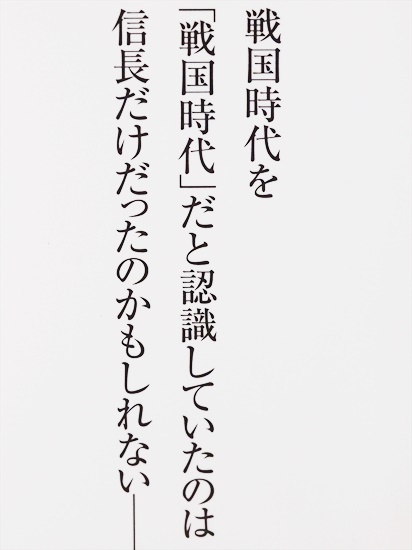 戦国時代を
「戦国時代」だと認識していたのは
信長だけだったのかもしれない――